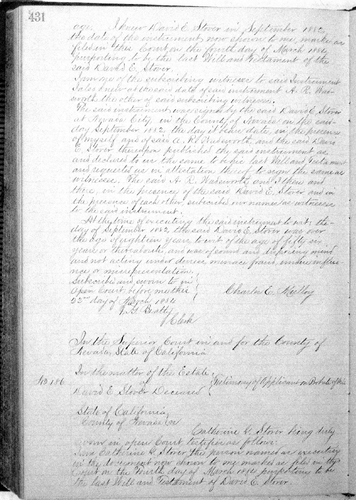 431
I knew David E. Stover in September 1882,
the date of the instrument now shown to me, marked as
filed in this Court on the fourth day of March 1884,
purporting to be the last Will and Testament of the
said David E. Stover.
I am one of the subscribing witnesses to said Instrument
I also knew at the date of said instrument A. R.
the other of said subscribing witnesses.
The said instrument was signed by the said David E. Stover
at Nevada City, in the County of Nevada on the
day September 1882, the day it bears date, in the presence
of myself and of said A. R. and the said David
E. Stover thereupon published the said instrument as
and declared to us the same to be his last Will and Testament
and requested us in attestation thereof to sign the same as
witnesses. The said A. R. and I then and
there, in the presence of the said David E. Stover and in
the presence of each other, subscribed our names as witnesses
to the said instrument.
At the time of executing the said instrument to wit, the
day of September 1882 the said David E. Stover was over
the age of eighteen years to wit of the age of fifty six
years or thereabouts, and was of sound and disposing mind
and not acting under duress menace fraud, undue influence
or misrepresentation.
Subscribed and sworn to in
open Court before me this
day of March 1884
Clerk
Charles E.
In the Superior Court in and for the County of
Nevada, State of California
In the matter of the Estate
of
David E. Stover Deceased
Testimony of Applicant on Probate of Will
State of California
County of Nevada
Catherine G. Stover being duly
sworn in open Court testifies as follows:
I am Catherine G. Stover the person named as executrix
in the document now shown to me marked as filed in this
Court on the fourth day of March 1884 purporting to be
the last Will and Testament of David E. Stover.